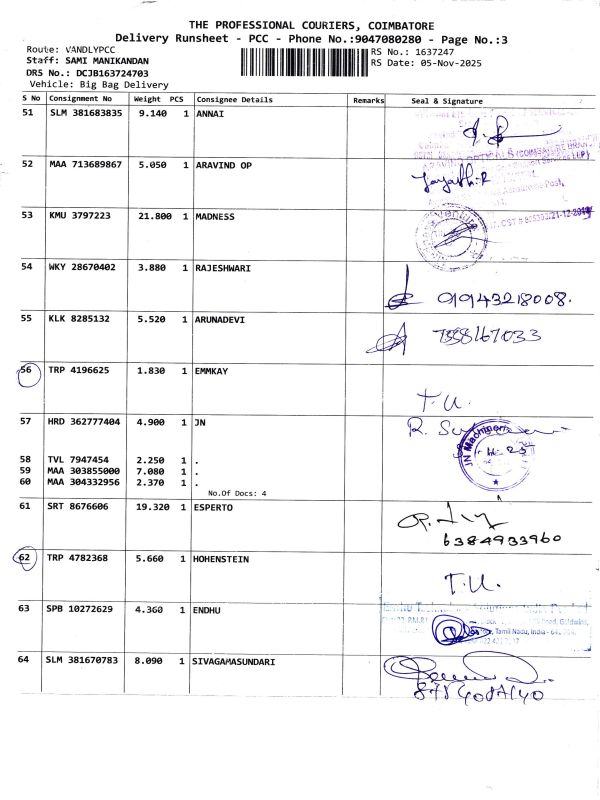 THE PROFESSIONAL COURIERS, COIMBATORE
Delivery Runsheet - PCC - Phone No.:9047080280 - Page No.:3
Route: VANDLYPCC
RS No.: 1637247
Staff: SAMI MANIKANDAN
RS Date: 05-Nov-2025
DRS No.: DCJB163724703
Vehicle: Big Bag Delivery
S No Consignment No Weight PCS Consignee Details Remarks Seal & Signature
51 SLM 381683835 9.140 1 ANNAI
52 MAA 713689867 5.050 1 ARAVIND OP
53 KMU 3797223 21.800 1 MADNESS
54 WKY 28670402 3.880 1 RAJESHWARI
91943218008.
55 KLK 8285132 5.520 1 ARUNADEVI
7358167033
56 TRP 4196625 1.830 1 EMMKAY
T.U.
57 HRD 362777404 4.900 1 JN
58 TVL 7947454 2.250 1 .
59 MAA 303855000 7.080 1 .
60 MAA 304332956 2.370 1 .
No.Of Docs: 4
61 SRT 8676606 19.320 1 ESPERTO
6384933960
62 TRP 4782368 5.660 1 HOHENSTEIN
T.U.
63 SPB 10272629 4.360 1 ENDHU
Tamil Nadu, India
64 SLM 381670783 8.090 1 SIVAGAMASUNDARI